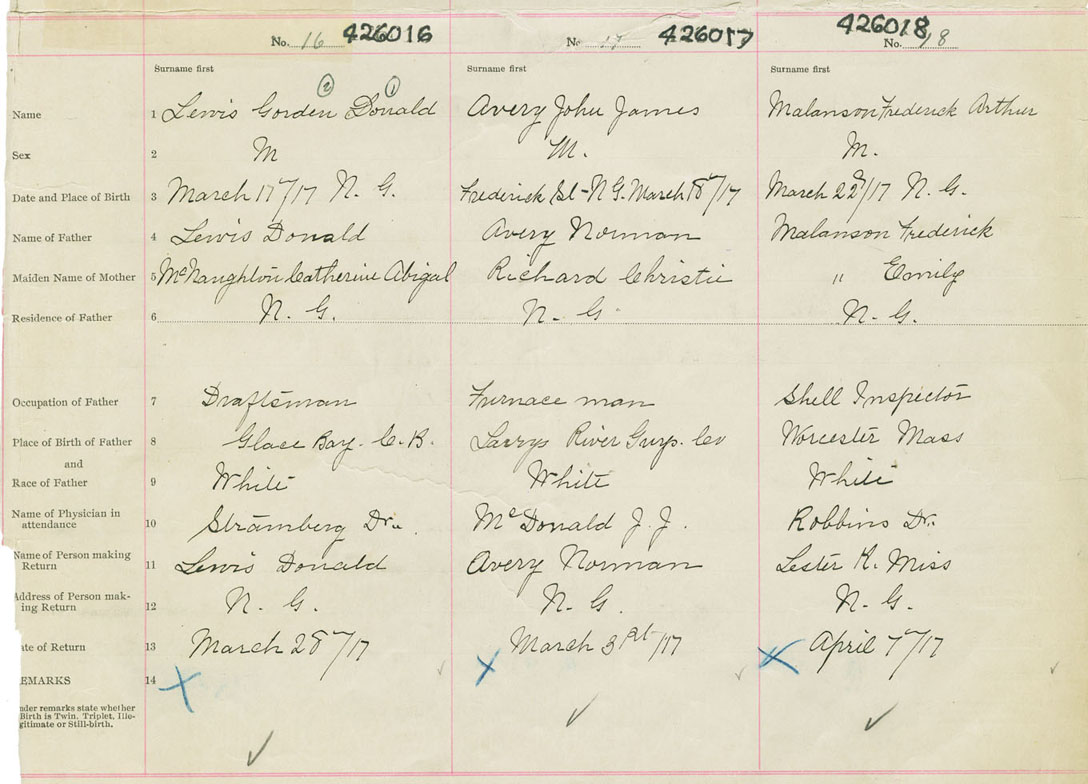 No. 16 426016 No. 17 426017 426018 No. 18
Surname first Surname first Surname first
② ①
Name 1 Lewis Gorden Donald Avery John James Malanson Frederick Arthur
Sex 2 M M. M.
Date and Place of Birth 3 March 17/17 N. G. Frederick St - N G. March 18/17 March 22/17 N. G.
Name of Father 4 Lewis Donald Avery Norman Malanson Frederick
Maiden Name of Mother 5 McNaughton Catherine Abigal Richard Christie " Emily
Residence of Father 6 N. G. N. G N. G.
Occupation of Father 7 Draftsman Furnace man Shell Inspector
Place of Birth of Father 8 Glace Bay. C. B. Larrys River Guys. Co Worcester Mass
and
Race of Father 9 White White White
Name of Physician in
attendance 10 Stramberg Dr. McDonald J. J. Robbins Dr.
Name of Person making
Return 11 Lewis Donald Avery Norman Lester K. Miss
Address of Person mak-
ing Return 12 N. G. N. G. N. G.
ate of Return 13 March 28/17 March /17 April 7/17
EMARKS 14
nder remarks state whether
Birth is Twin. Triplet, Ille-
gitimate or Still-birth.